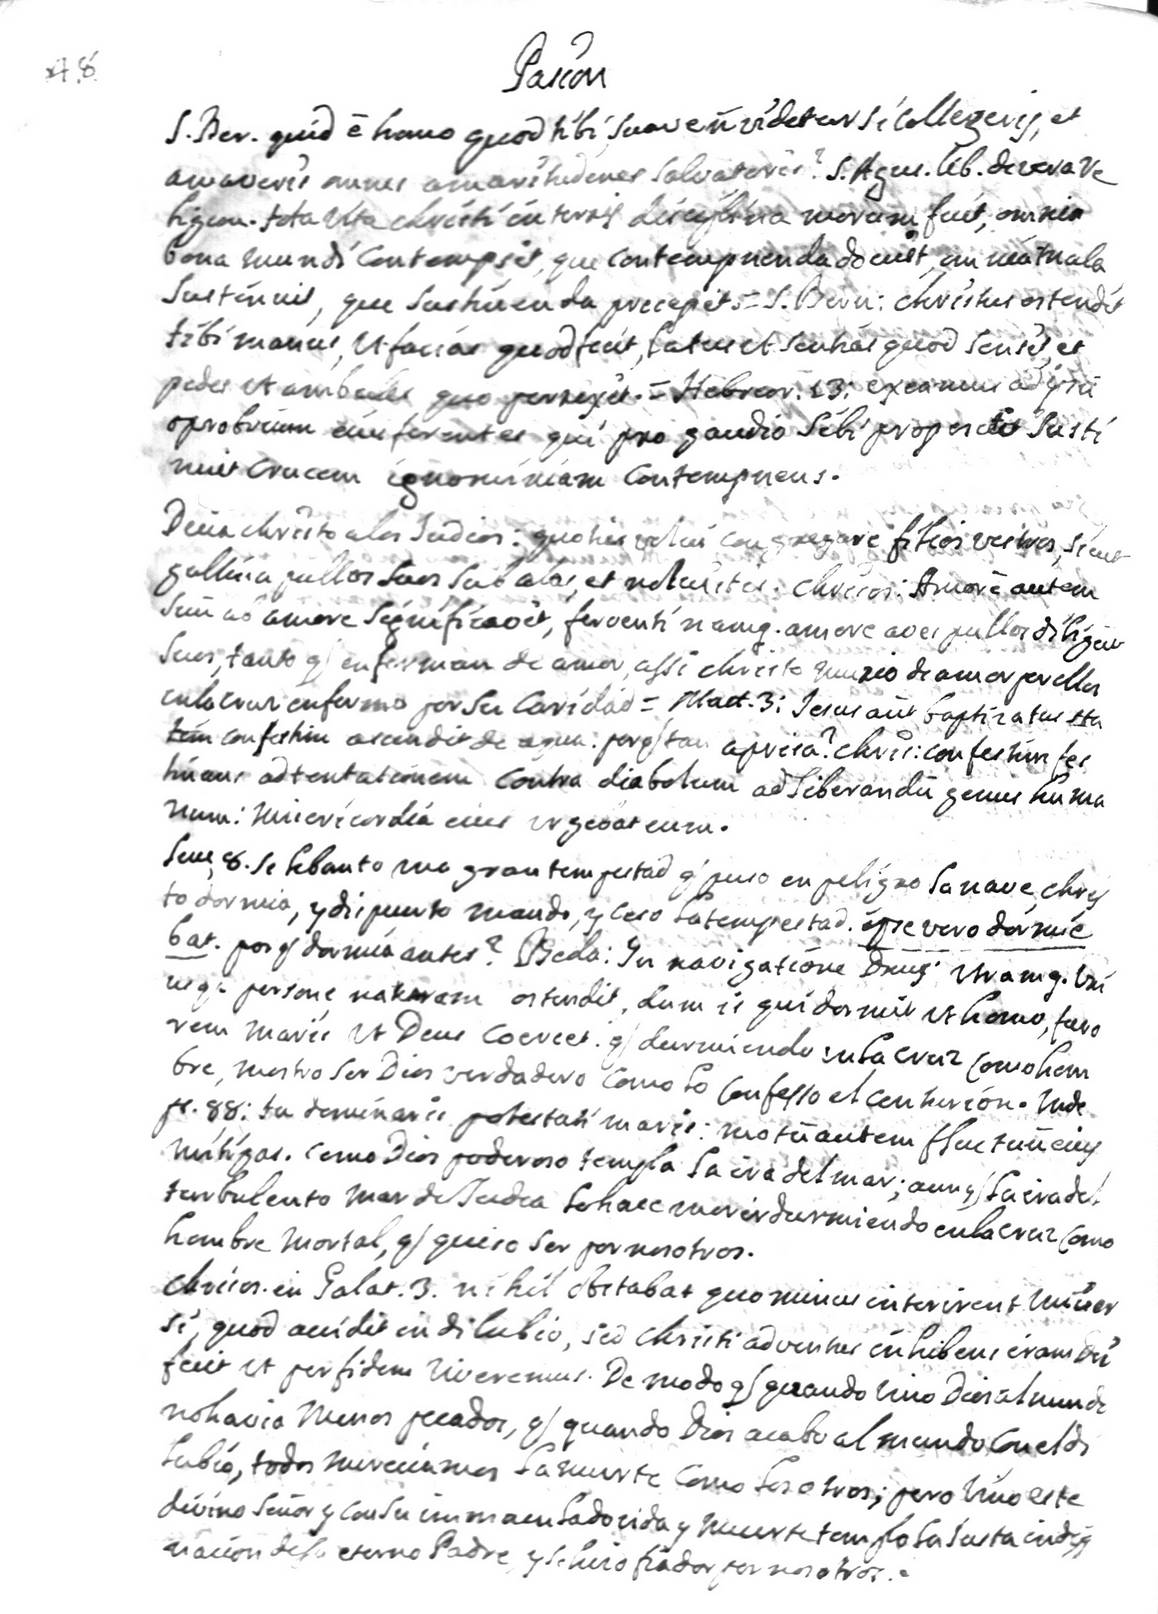 48
Pasion
S. Ber. quid ē homo quod tibi suave ñ videtur si collegeris, et
amaveris omnes amaritudines Salvatoris? S. Agus. lib. de vera Re
ligion. tota vita christi in terris disciplina morum fuit, omnia
bona mundi Contempsit, que contempnenda docuit, omnia mala
Sustinuit, que Sustinenda precepit = S. Bern: christus ostendit
tibi manus, Ut facias quod fecit, latus et sentias quod sensit, et
pedes ut ambules quo perrexit. = Hebreor. 13: exeamus ad ipsū
oprobrium eius ferentes, qui pro gaudio sibi proposito Susti
nuit crucem ignominiam Contempnens.
Decia christo a los Judios: quoties volui congregare filios vestros, sicut
gallina pullos suos sub alas, et noluistis. chrisos: Amorē autem
Suū ab amore significavit, ferventi namq. amore aves pullos diligunt
Suos, tanto q̃ enferman de amor, assi christo murio de amor por ellos
en la cruz enfermo por su Caridad = Matt. 3: Jesus aūt baptizatus sta
tim confestim ascendit de aqua: porq̃ tan aprisa? chris: confestim fes
tinans ad tentationem contra diabolum ad liberandū genus huma
num: misericordia eius urgebat eum.
Luc, 8. Se lebanto una gran tempestad q̃ puso en peligro la nave, chris
to dormia, y dispierto mando, y ceso la tempestad. ipse vero dormie
bat. porq̃ dormia antes? Beda: In navigatione Dn̄s utramq. Uni
usq. persone naturam ostendit, dum is qui dormit ut homo, furo
rem maris ut Deus coercet: q̃ durmiendo en la cruz como hom
bre, mostro ser Dios verdadero como lo confesso el centurion. Unde
ps. 88: tu dominaris potestati maris: motū autem fluctuū eius
mitigas. Como Dios poderoso templa la ira del mar; aunq̃ la ira del
turbulento mar de Judea le hace morir durmiendo en la cruz como
hombre mortal, q̃ quiso ser por nosotros.
chrisos. in Galat. 3. nihil obstabat quo minus interirent univer
si, quod accidit in dilubio, sed christi adventus inhibens iram Dei
fecit ut per fidem viveremus. De modo q̃ quando vino Dios al mundo
no havia menos pecados, q̃ quando Dios acabo al mundo con el di
lubio, todos mereciamos la muerte como los otros; pero vino este
divino señor y con su immaculada vida y muerte templo la justa indig
nacion de su eterno Padre, y se hizo fiador por nosotros.